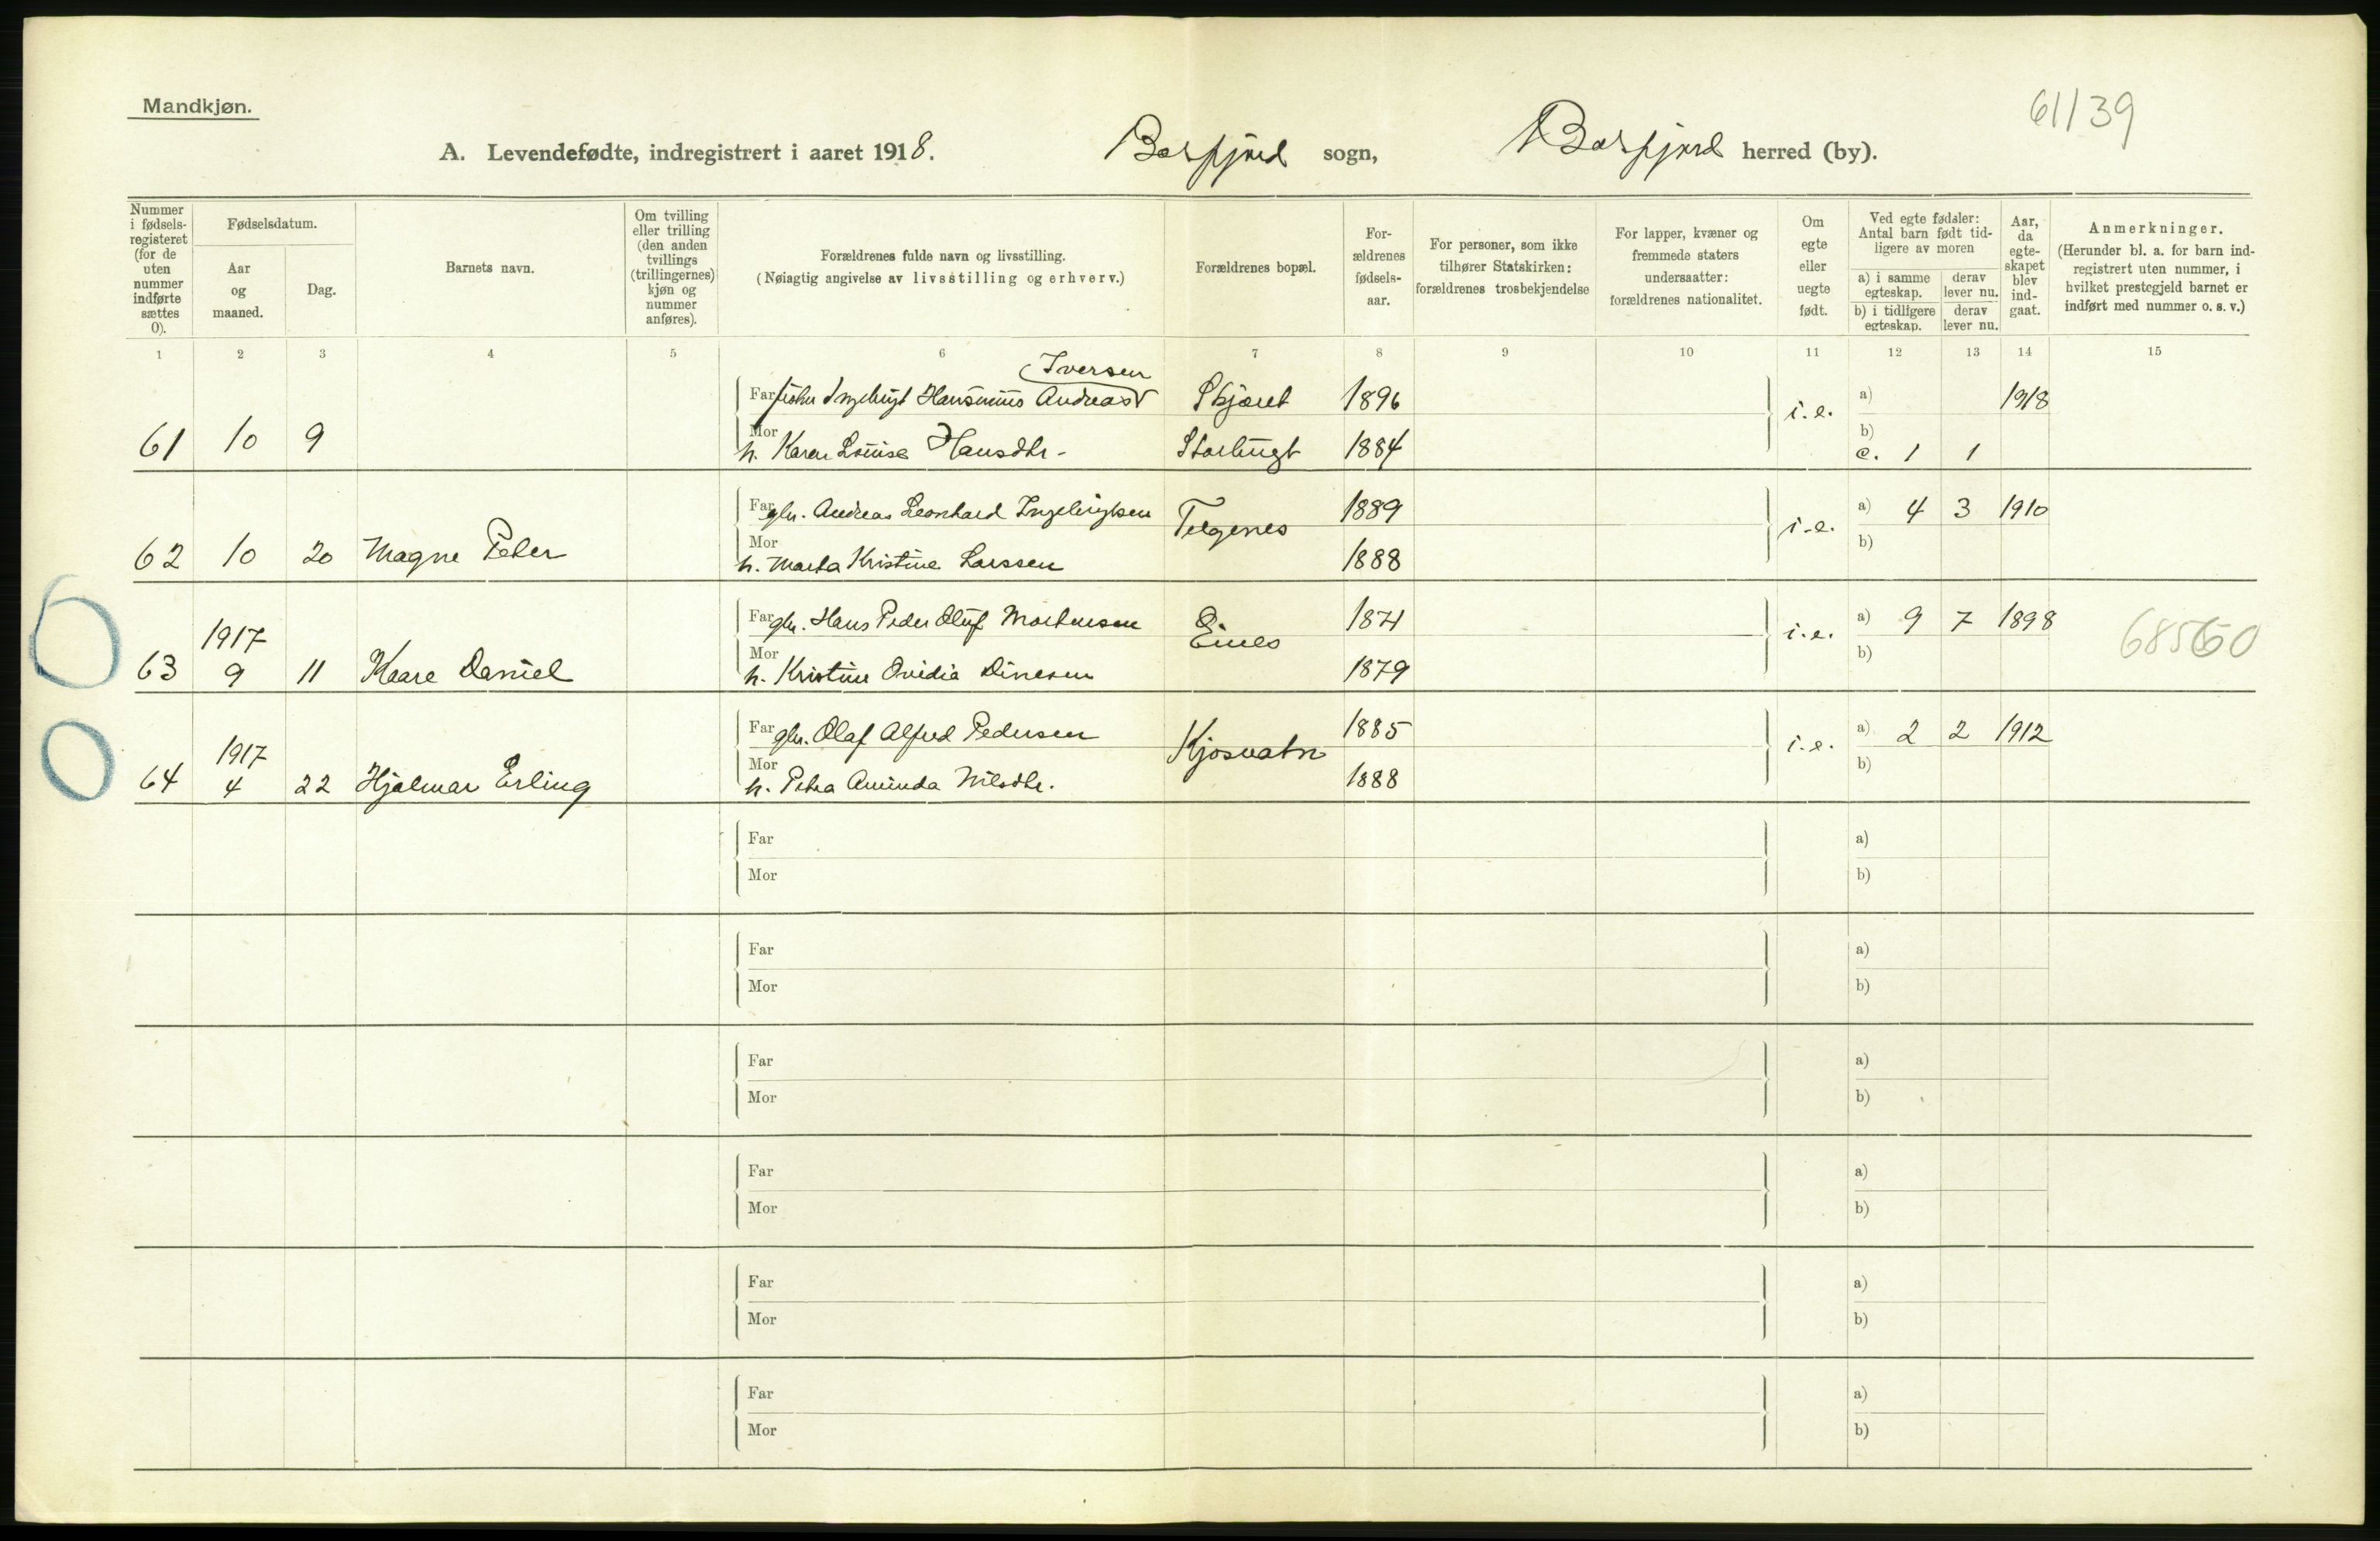 Mandkjøn.
61/39
A. Levendefødte, indregistrert i aaret 1918. Balsfjord sogn, Balsfjord herred (by).
Nummer i fødsels-registeret (for de uten nummer indførte sættes 0).
Fødselsdatum.
Aar og maaned.
Dag.
Barnets navn.
Om tvilling eller trilling (den anden tvillings (trillingernes) kjøn og nummer anføres).
Forældrenes fulde navn og livsstilling.
(Nøiagtig angivelse av livsstilling og erhverv.)
Forældrenes bopæl.
For-ældrenes fødsels-aar.
For personer, som ikke tilhører Statskirken: forældrenes trosbekjendelse
For lapper, kvæner og fremmede staters undersaatter: forældrenes nationalitet.
Om egte eller uegte født.
Ved egte fødsler: Antal barn født tid-ligere av moren
a) i samme egteskap.
derav lever nu.
b) i tidligere egteskap.
derav lever nu.
Aar, da egte-skapet blev ind-gaat.
Anmerkninger.
(Herunder bl. a. for barn ind-registrert uten nummer, i hvilket prestegjeld barnet er indført med nummer o. s. v.)
1 2 3 4 5 6 7 8 9 10 11 12 13 14 15
Iversen
Far fisker Ingebrigt Hansinius Andreas 1896 i.e. a) 1918
b)
61 10 9 Mor h. Karen Louise Hansdtr. Storbugt 1884 c. 1 1
Far gbr. Andreas Leonhard Ingebrigtsen 1889 i.e. a) 4 3 1910
b)
62 10 20 Magne Peder Mor h. Marta Kristine Larssen 1888
Far gbr. Hans Peder Oluf Mortensen 1871 a) 9 7 1898
1917 i.e. 68560
b)
63 9 11 Kaare Daniel Mor h. Kristine Ovidia Dinesen 1879
Far gbr. Olaf Alfred Pedersen 1885 a) 2 2 1912
1917 Kjosvatn i.e.
b)
64 4 22 Hjalmar Erling Mor h. Petra Aminda Nilsdtr. 1888
Far a)
Mor b)
Far a)
Mor b)
Far a)
Mor b)
Far a)
Mor b)
Far a)
Mor b)
Far a)
Mor b)